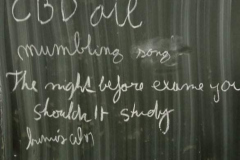 CBD oil
mumbling song
The night before exame you
shouldn't study